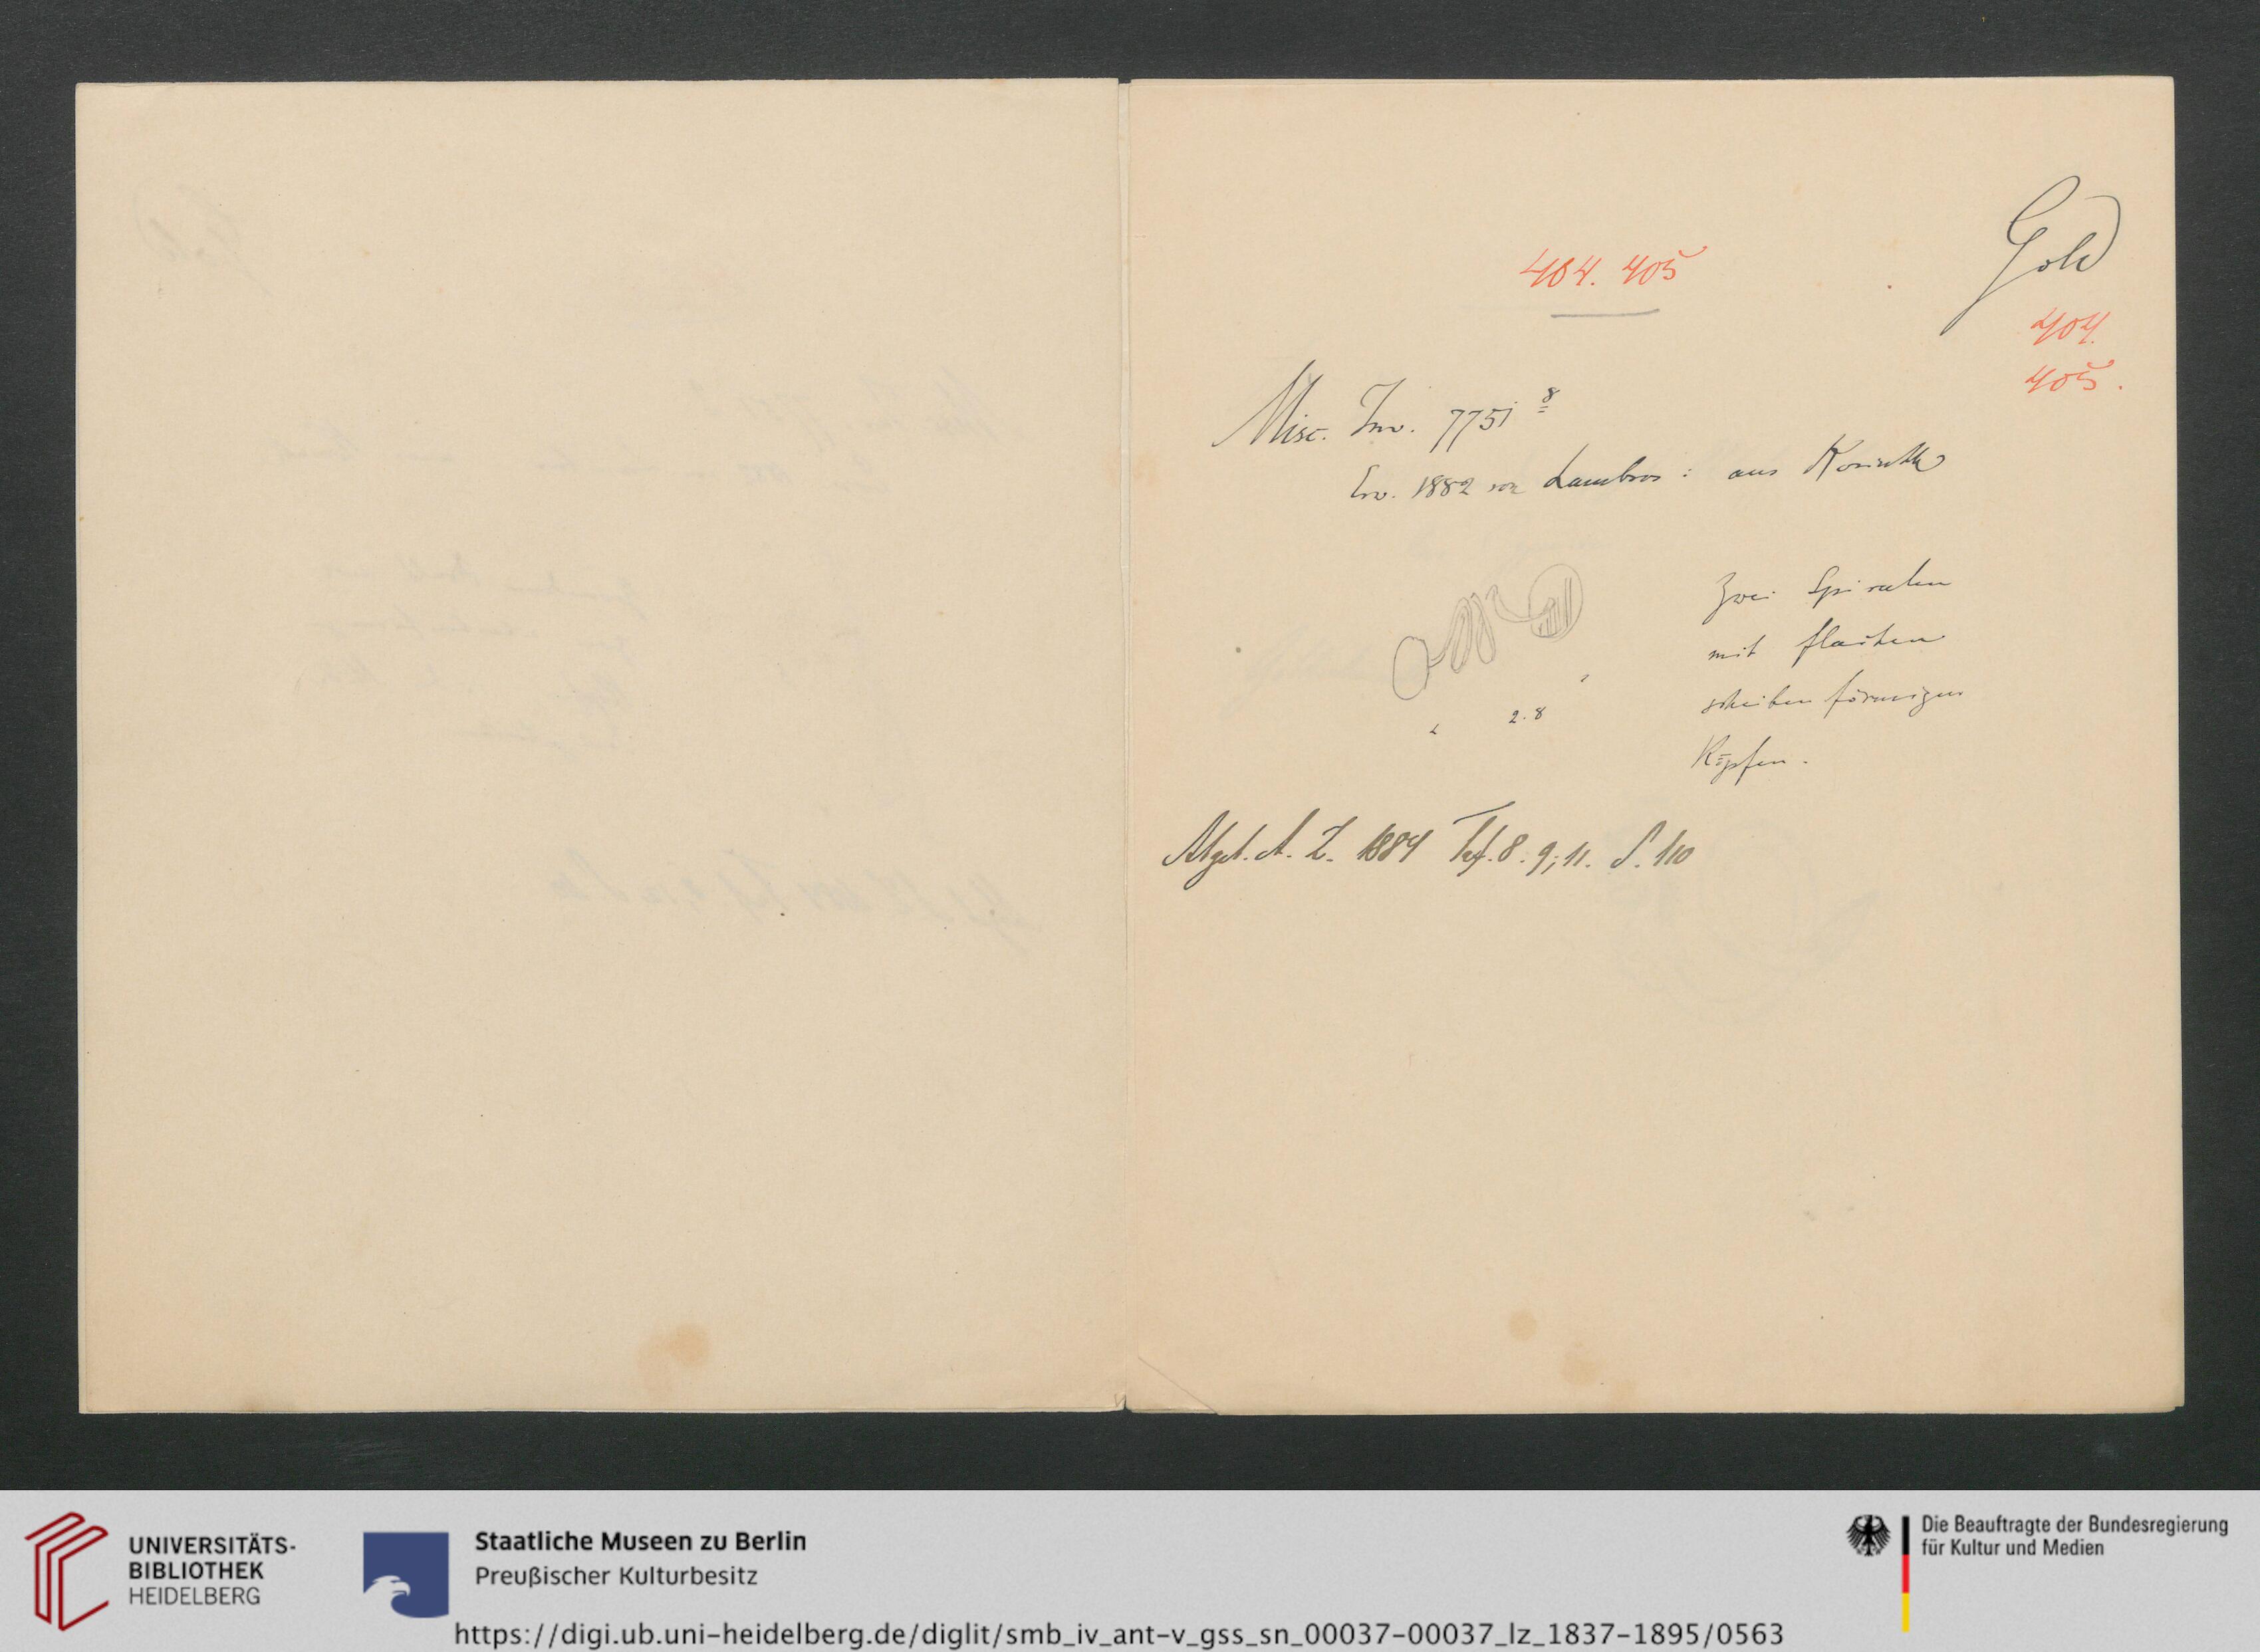 Gold
404. 405
404.
405.
Misc. Inv. 7751 8
Erw. 1882 von Lambros: aus Korinth
Zwei Spiralen
mit flachen
scheibenförmigen
Köpfen.
2.8
Abgeb. A. Z. 1884 Taf. 8. 9; 11. S. 110
UNIVERSITÄTS-
BIBLIOTHEK
HEIDELBERG
Staatliche Museen zu Berlin
Preußischer Kulturbesitz
Die Beauftragte der Bundesregierung
für Kultur und Medien
https://digi.ub.uni-heidelberg.de/diglit/smb_iv_ant-v_gss_sn_00037-00037_lz_1837-1895/0563